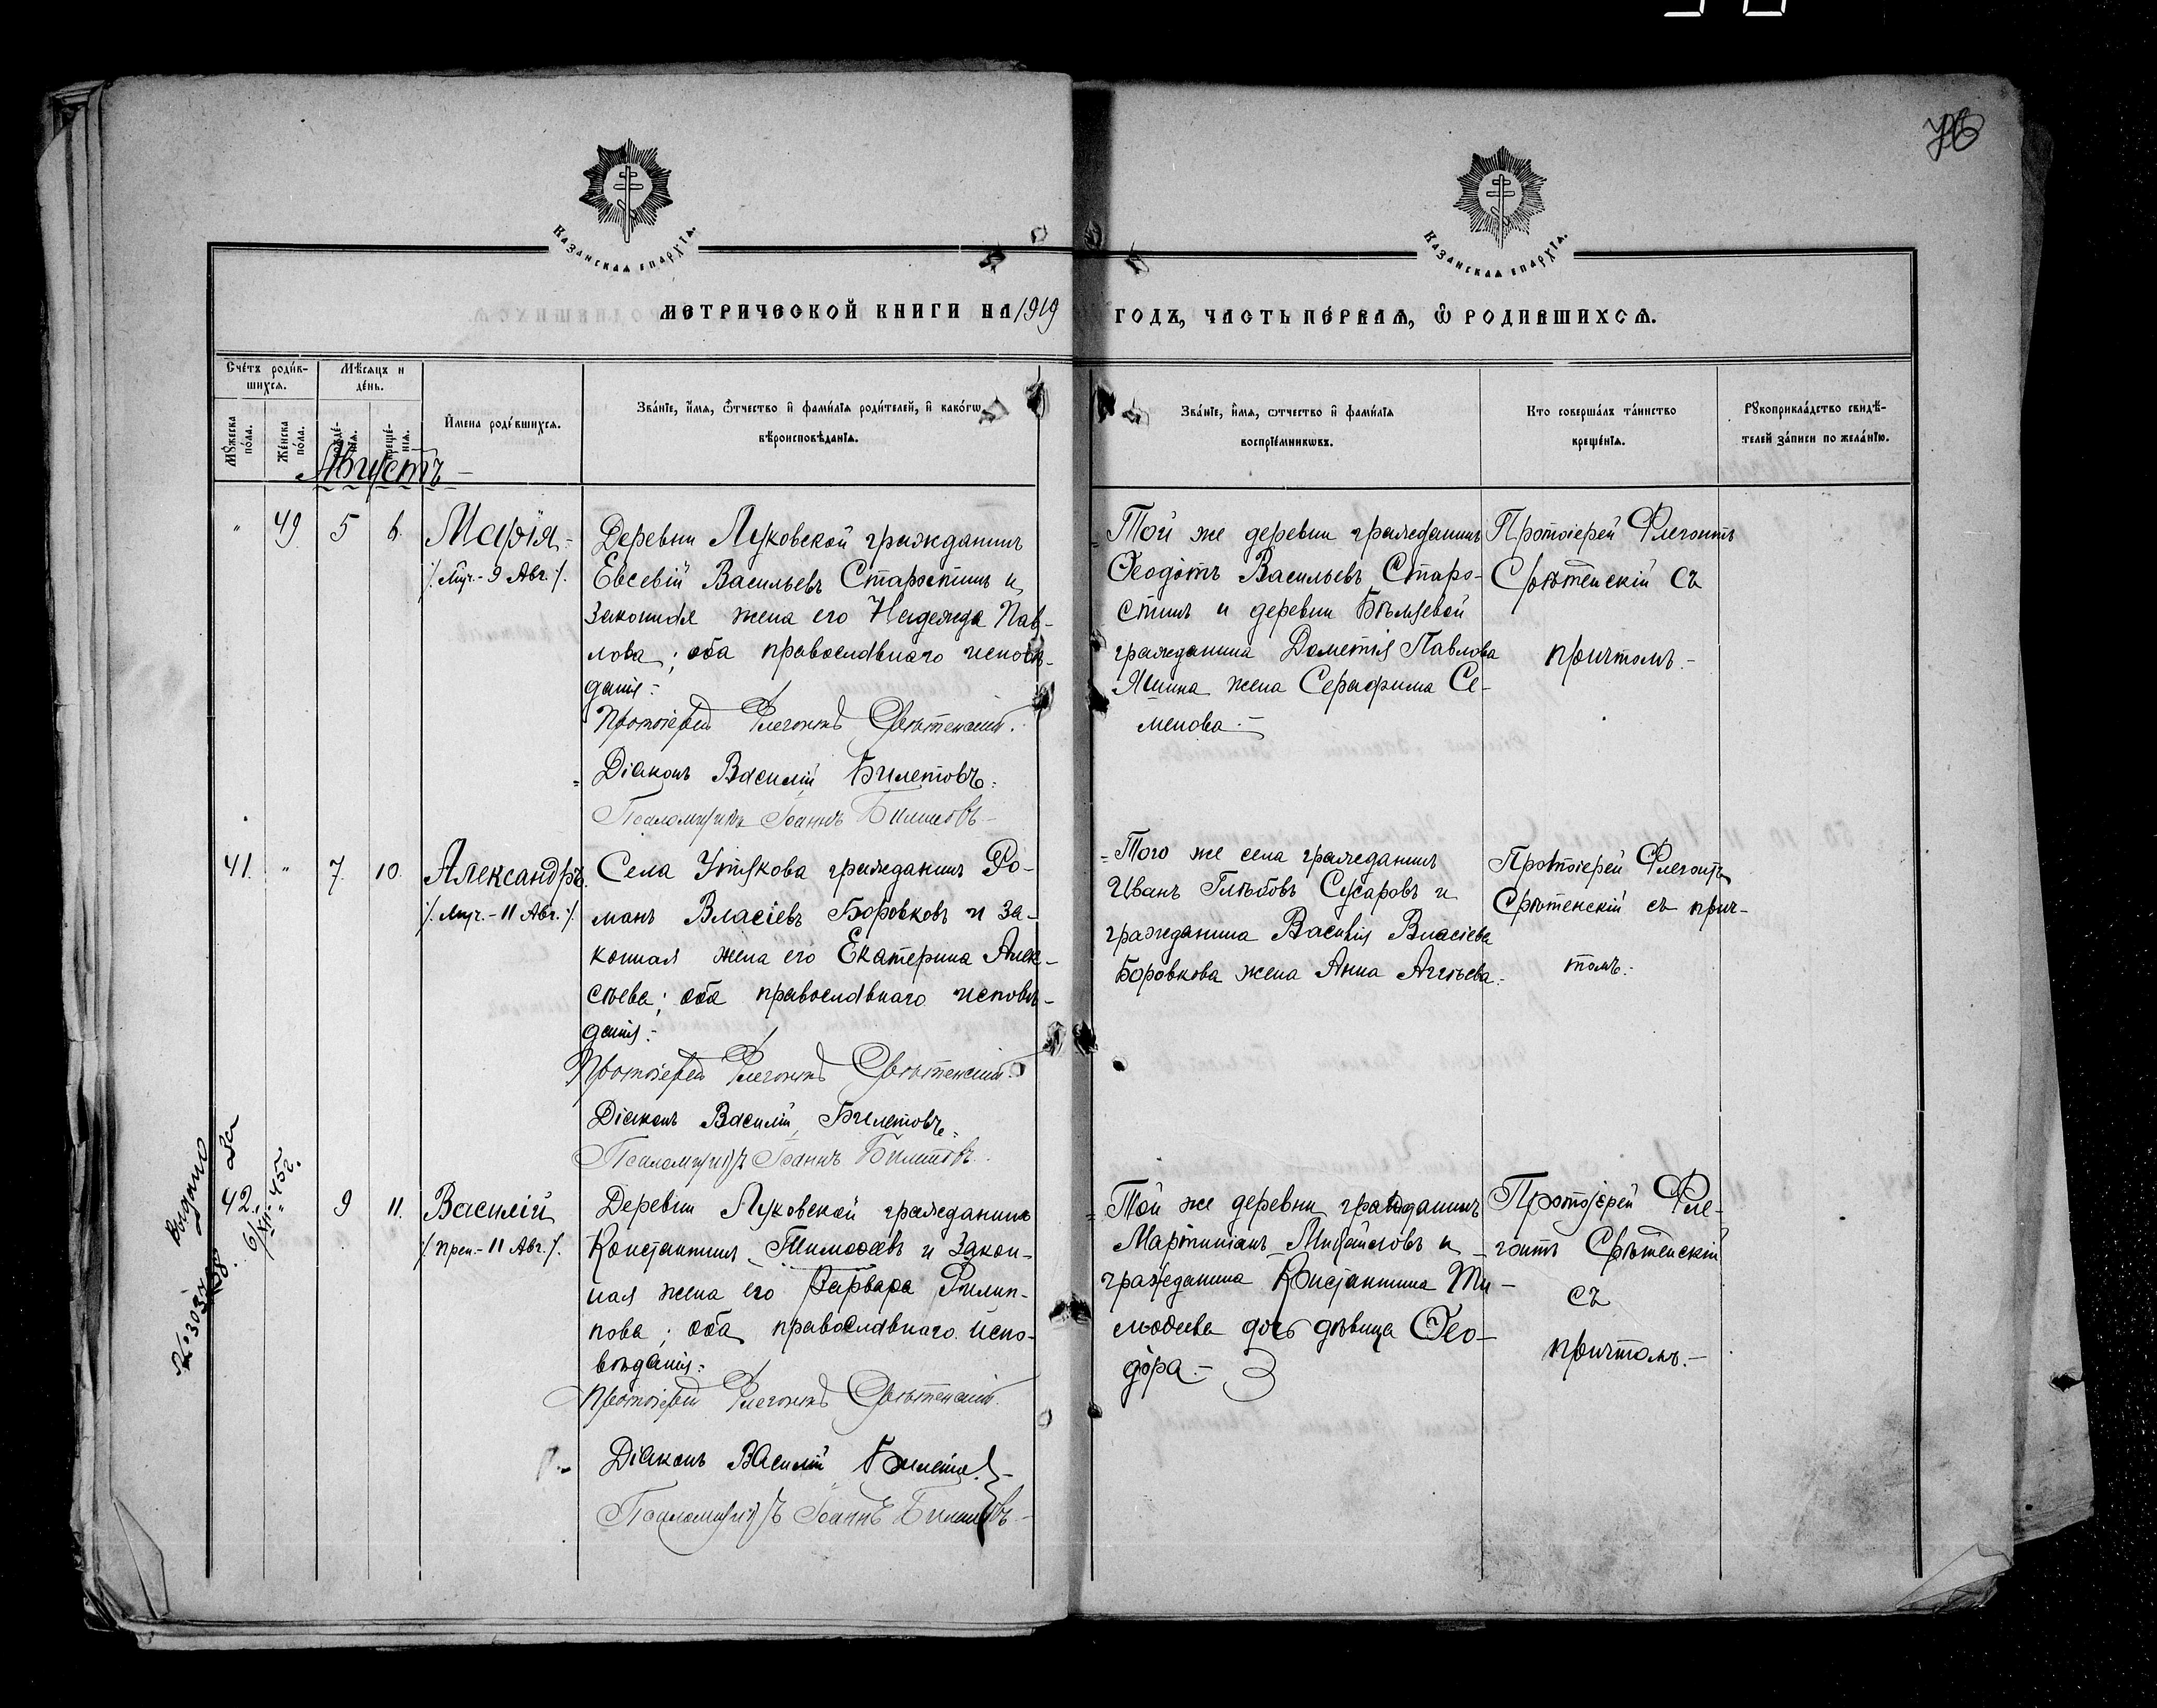 76
Казанская епархїа.
Казанская епархїа.
МЕТРИЧЕСКОЙ КНИГИ НА 1919
ГОДЪ, ЧАСТЬ ПЕРВАѦ, Ѡ РОДИВШИХСѦ.
Сче́тъ роди́в-
шихсѧ.
Мѣ́сяцъ и
де́нь.
Мꙋ́жеска
по́ла.
Же́нска
по́ла.
рожде́-
нїѧ.
креще́-
нїѧ.
И҆мена роди́вшихсѧ.
Зва́нїе, и҆́мѧ, ѻ҆́тчество и҆ фами́лїѧ роди́телей, и҆ како́гѡ
вѣроисповѣ́данїѧ.
Зва́нїе, и҆́мѧ, ѻтчество и҆ фами́лїѧ
воспрїе́мникѡвъ.
Кто соверша́лъ та́инство
креще́нїѧ.
Рꙋкоприкла́дство свидѣ́-
телей за́писи по жела́нїю.
Августъ
" 49 5 6.
Марія.-
/. Муч.- 9 Авг. /.
Деревни Луковской гражданинъ
Евсевій Васильевъ Старостинъ и
законная жена его Надежда Пав-
лова; оба православнаго исповѣ-
данія.-
Протоіерей Флегонтъ Срѣтенскій.
Діаконъ Василій Билетовъ.
Псаломщикъ Іоаннъ Билетовъ
Той же деревни гражданинъ
Ѳеодотъ Васильевъ Старо-
стинъ и деревни
гражданина Дометія Павлова
Яшина жена Серафима Се-
менова.-
Протоіерей Флегонтъ
Срѣтенскій съ
причтомъ.-
41. " 7. 10.
Александръ.
/. Муч.- 11 Авг. /.
Села Утякова гражданинъ Ро-
манъ Власіевъ Боровковъ и за-
конная жена его Екатерина Алек-
сѣева; оба православнаго исповѣ-
данія.-
Протоіерей Флегонтъ Срѣтенскій.
Діаконъ Василій Билетовъ.
Псаломщикъ Іоаннъ Билетовъ.
Того же села гражданинъ
Иванъ Глѣбовъ Сусаровъ и
гражданина Василія Власіева
Боровкова жена Анна Аггѣева.
Протоіерей Флегонтъ
Срѣтенскій съ прич-
томъ.-
Выдано За
№ 303768
6/XII-45г.
42. " 9 11.
Василій
/. Преп.- 11 Авг. /.
Деревни Луковской гражданинъ
Константинъ Тимоѳеевъ и закон-
ная жена его Варвара Филип-
пова; оба православнаго испо-
вѣданія.-
Протоіерей Флегонтъ Срѣтенскій.
Діаконъ Василій Билетов
Псаломщикъ Іоаннъ Билетовъ.
Той же деревни гражданинъ
Мартиніанъ Михайловъ и
гражданина Константина Ти-
моѳеева дочь дѣвица Ѳео-
дора.-
Протоіерей Фле-
гонтъ Срѣтенскій
съ
причтомъ.-